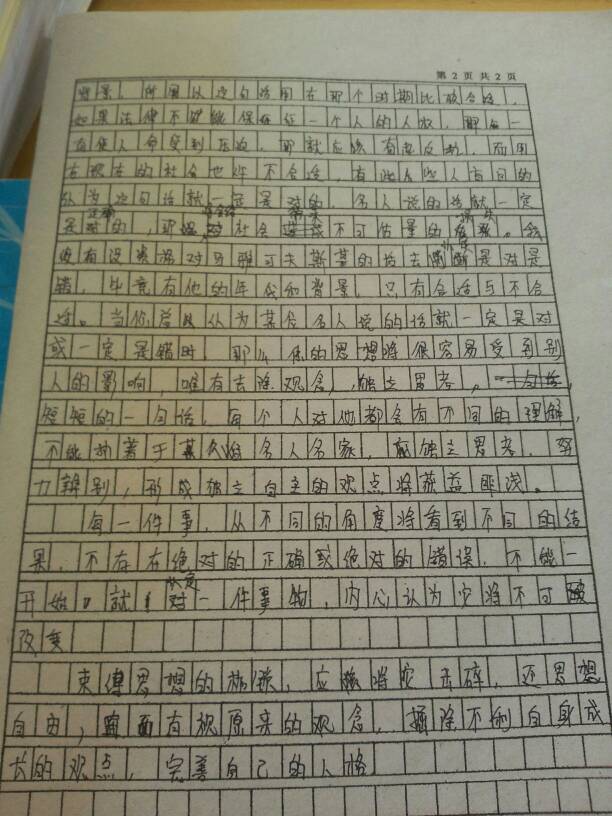 第 2 页 共 2 页
背景，所以这句话用在那个时期比较合适，
如果法律不能够保任一个人的人权，那么一
直使人命受到压迫，那就应该有起反抗，而用
在现在的社会也许不合适，有些人有同的
认为这句话就一定是对的，名人说的话就一定
是正确的，那对社会不可估量的损失。
没有没对马雅可夫斯基的话去判断是对是
错，毕竟有他的年代和背景，只有合适与不合
适。当你总认为某名人说的话就一定是对
或一定是错时，那么你的思想将很容易受到别
人的影响，唯有去除观念，独立思考。一句话，
短短的一句话，每个人对他都会有不同的理解，
不能执着于名人名家，独立思考，努
力辨别，形成独立自主的观点将获益匪浅。
每一件事，从不同的角度将看到不同的结
果，不存在绝对的正确或绝对的错误，不能一
开始就认定一件事物，内心认为它将不可
改变
束缚思想的枷锁，应将它击碎，还思想
自由，有观原来的观念，摒除不利自身成
长的观点，完善自己的人格